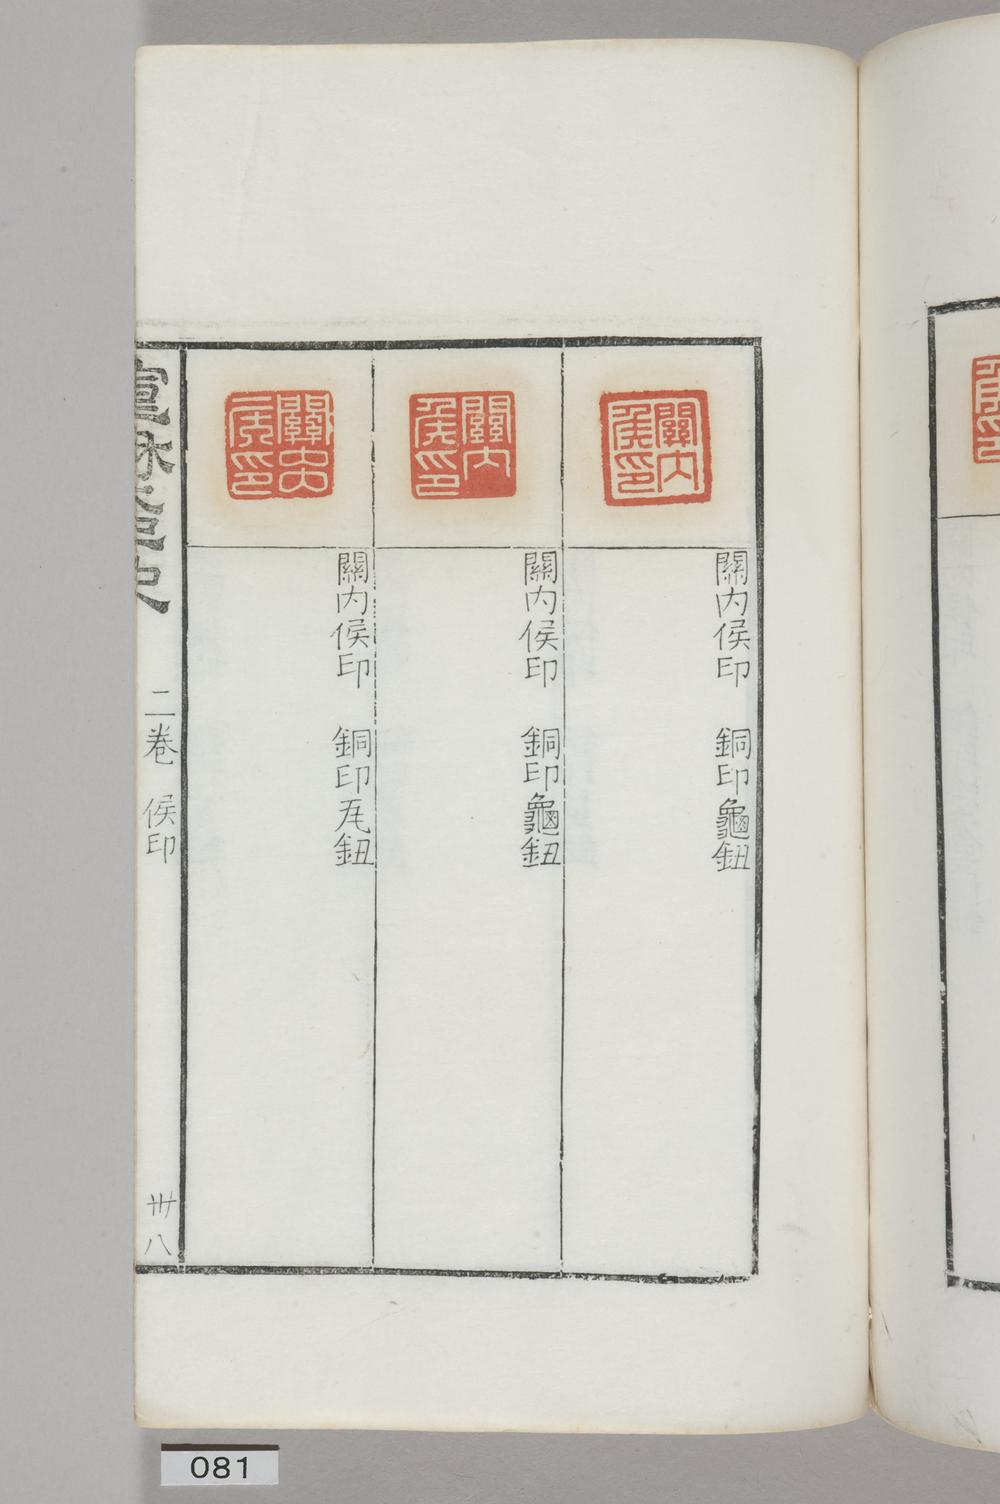 關内
侯印
關内侯印　銅印龜鈕
關内
侯印
關内侯印　銅印龜鈕
關内侯印　銅印瓦鈕
二卷　侯印
卅八
081